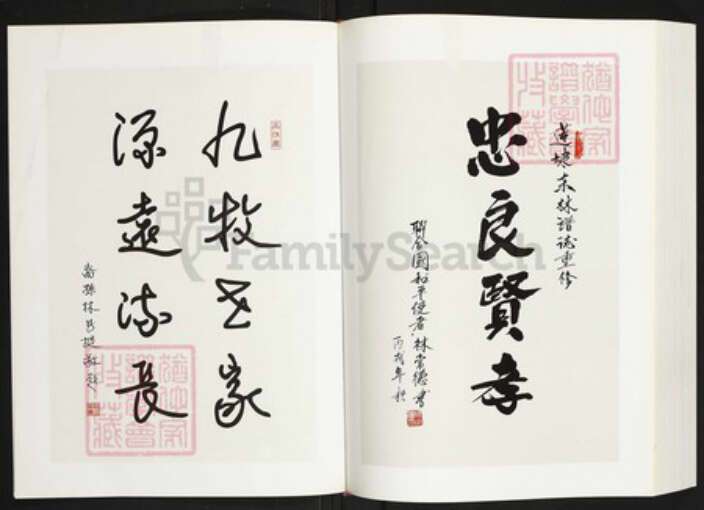 蓮塘東林譜誌重修
忠良賢孝
聯合國和平使者 林常德書
丙戌年秋
九牧世家
源遠流長
裔孫林
敬題
FamilySearch